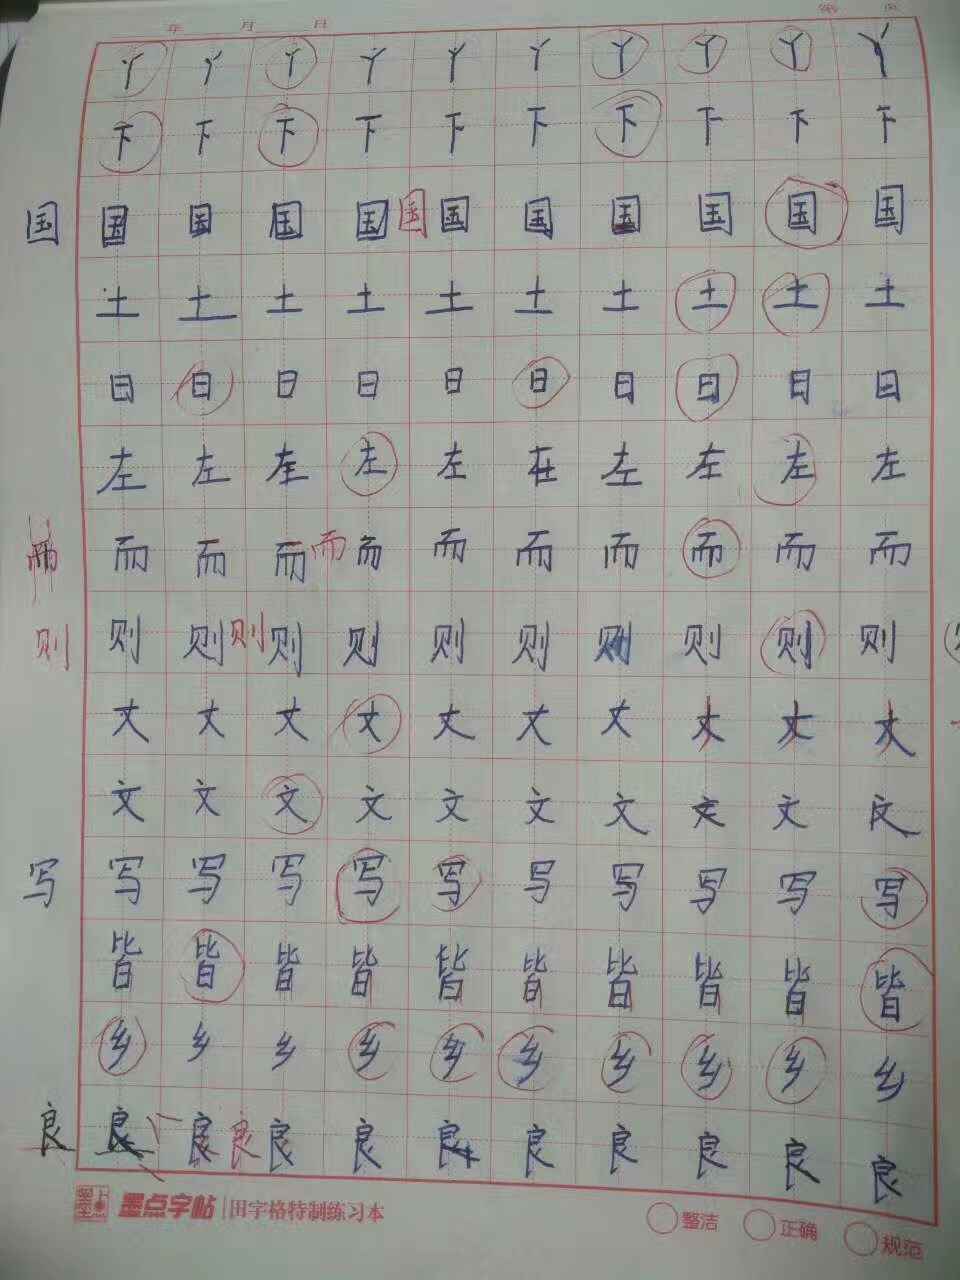 年 月 日 第 页
丫 丫 丫 丫 丫 丫 丫 丫 丫 丫
下 下 下 下 下 下 下 下 下 下
国 国 国 国 国 国 国 国 国 国 国 国
土 土 土 土 土 土 土 土 土 土
日 日 日 日 日 日 日 日 日 日
左 左 左 左 左 在 左 左 左 左
而 而 而 而 而 而 而 而 而 而 而
则 则 则 则 则 则 则 则 则 则 则 则
丈 丈 丈 丈 丈 丈 丈 丈 丈 丈
文 文 文 文 文 文 文 文 文 文
写 写 写 写 写 写 写 写 写 写 写
皆 皆 皆 皆 皆 皆 皆 皆 皆 皆
乡 乡 乡 乡 乡 乡 乡 乡 乡 乡
良 良 良 良 良 良 良 良 良 良 良 良
墨点字帖 田字格特制练习本 整洁 正确 规范